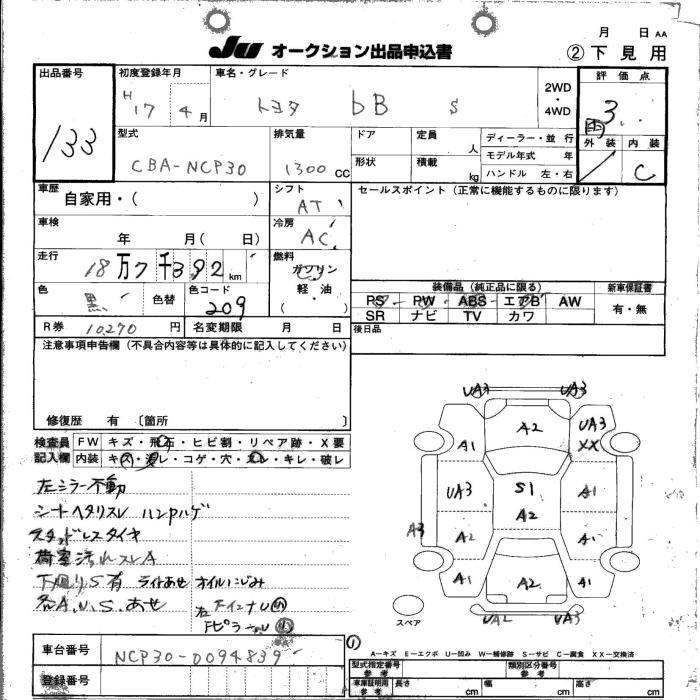 月 日 AA
JU オークション出品申込書
② 下見用
出品番号
133
初度登録年月
H 17 4月
車名・グレード
トヨタ bB S
2WD・4WD
評価点
3
外装 内装
C
型式
CBA-NCP30
排気量
1300 CC
ドア
形状
定員 人
積載 kg
ディーラー・並行
モデル年式 年
ハンドル 左・右
車歴
自家用・( )
シフト
AT
セールスポイント(正常に機能するものに限ります)
車検
年 月( 日)
冷房
AC
走行
18万7千392 km
燃料
ガソリン
軽・油
( )
色
黒
色替
色コード
209
装備品(純正品に限る)
新車保証書
PS PW ABS エアB AW
有・無
SR ナビ TV カワ
R券 10270 円
名変期限 月 日
後日品
注意事項申告欄(不具合内容等は具体的に記入してください)
修復歴 有 〔箇所 〕
検査員記入欄
FW キズ・飛石・ヒビ割・リペア跡・X要
内装 キズ・汚レ・コゲ・穴・スレ・キレ・破レ
左ミラー不動
シートヘタリスレ ハンドハゲ
スタッドレスタイヤ
荷室汚れスレA
下廻りS有 ライトあせ オイルにじみ
各A.U.S.あせ
UA3 UA3
A2
UA3
XX
A1
UA3
S1
A1
A2
A3
A2
A1
A1
A2
A1
スペア
UA2 UA3
A-キズ E-エクボ U-凹み W-補修跡 S-サビ C-腐食 XX-交換済
車台番号
NCP30-0094839
登録番号
型式指定番号 参考
類別区分番号 参考
車庫証明用 参考
長さ cm
幅 cm
高さ cm